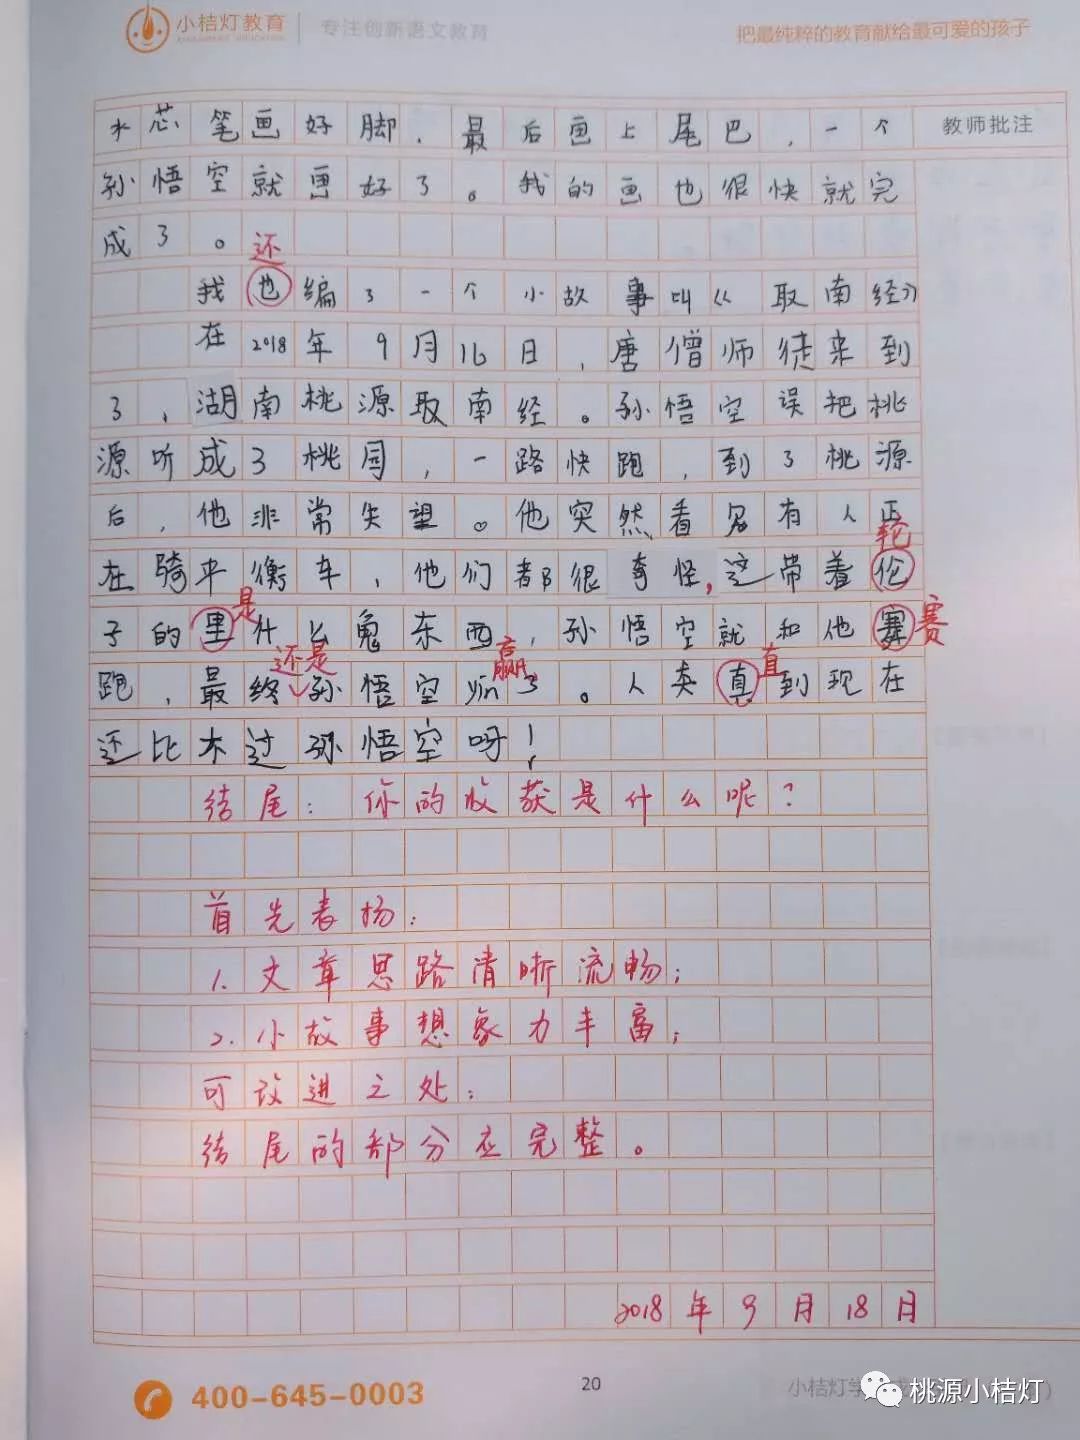 小桔灯教育 专注创新语文教育 把最纯粹的教育献给最可爱的孩子
教师批注
水芯笔画好脚，最后画上尾巴，一个
孙悟空就画好了。我的画也很快就完
成了。
还
我也编了一个小故事叫《取南经》
在2018年9月16日，唐僧师徒来到
了，湖南桃源取南经。孙悟空误把桃
源听成了桃园，一路快跑，到了桃源
后，他非常失望。他突然看见有人正
轮
在骑平衡车，他们都很奇怪，这带着伦
是 赛
子的里什么鬼东西，孙悟空就和他赛
还是 赢 直
跑，最终孙悟空yin了。人类真到现在
还比不过孙悟空呀！
结尾：你的收获是什么呢？
首先表扬：
1.文章思路清晰流畅；
2.小故事想象力丰富；
可改进之处：
结尾的部分应完整。
2018年9月18日
400-645-0003
20
小桔灯学
桃源小桔灯